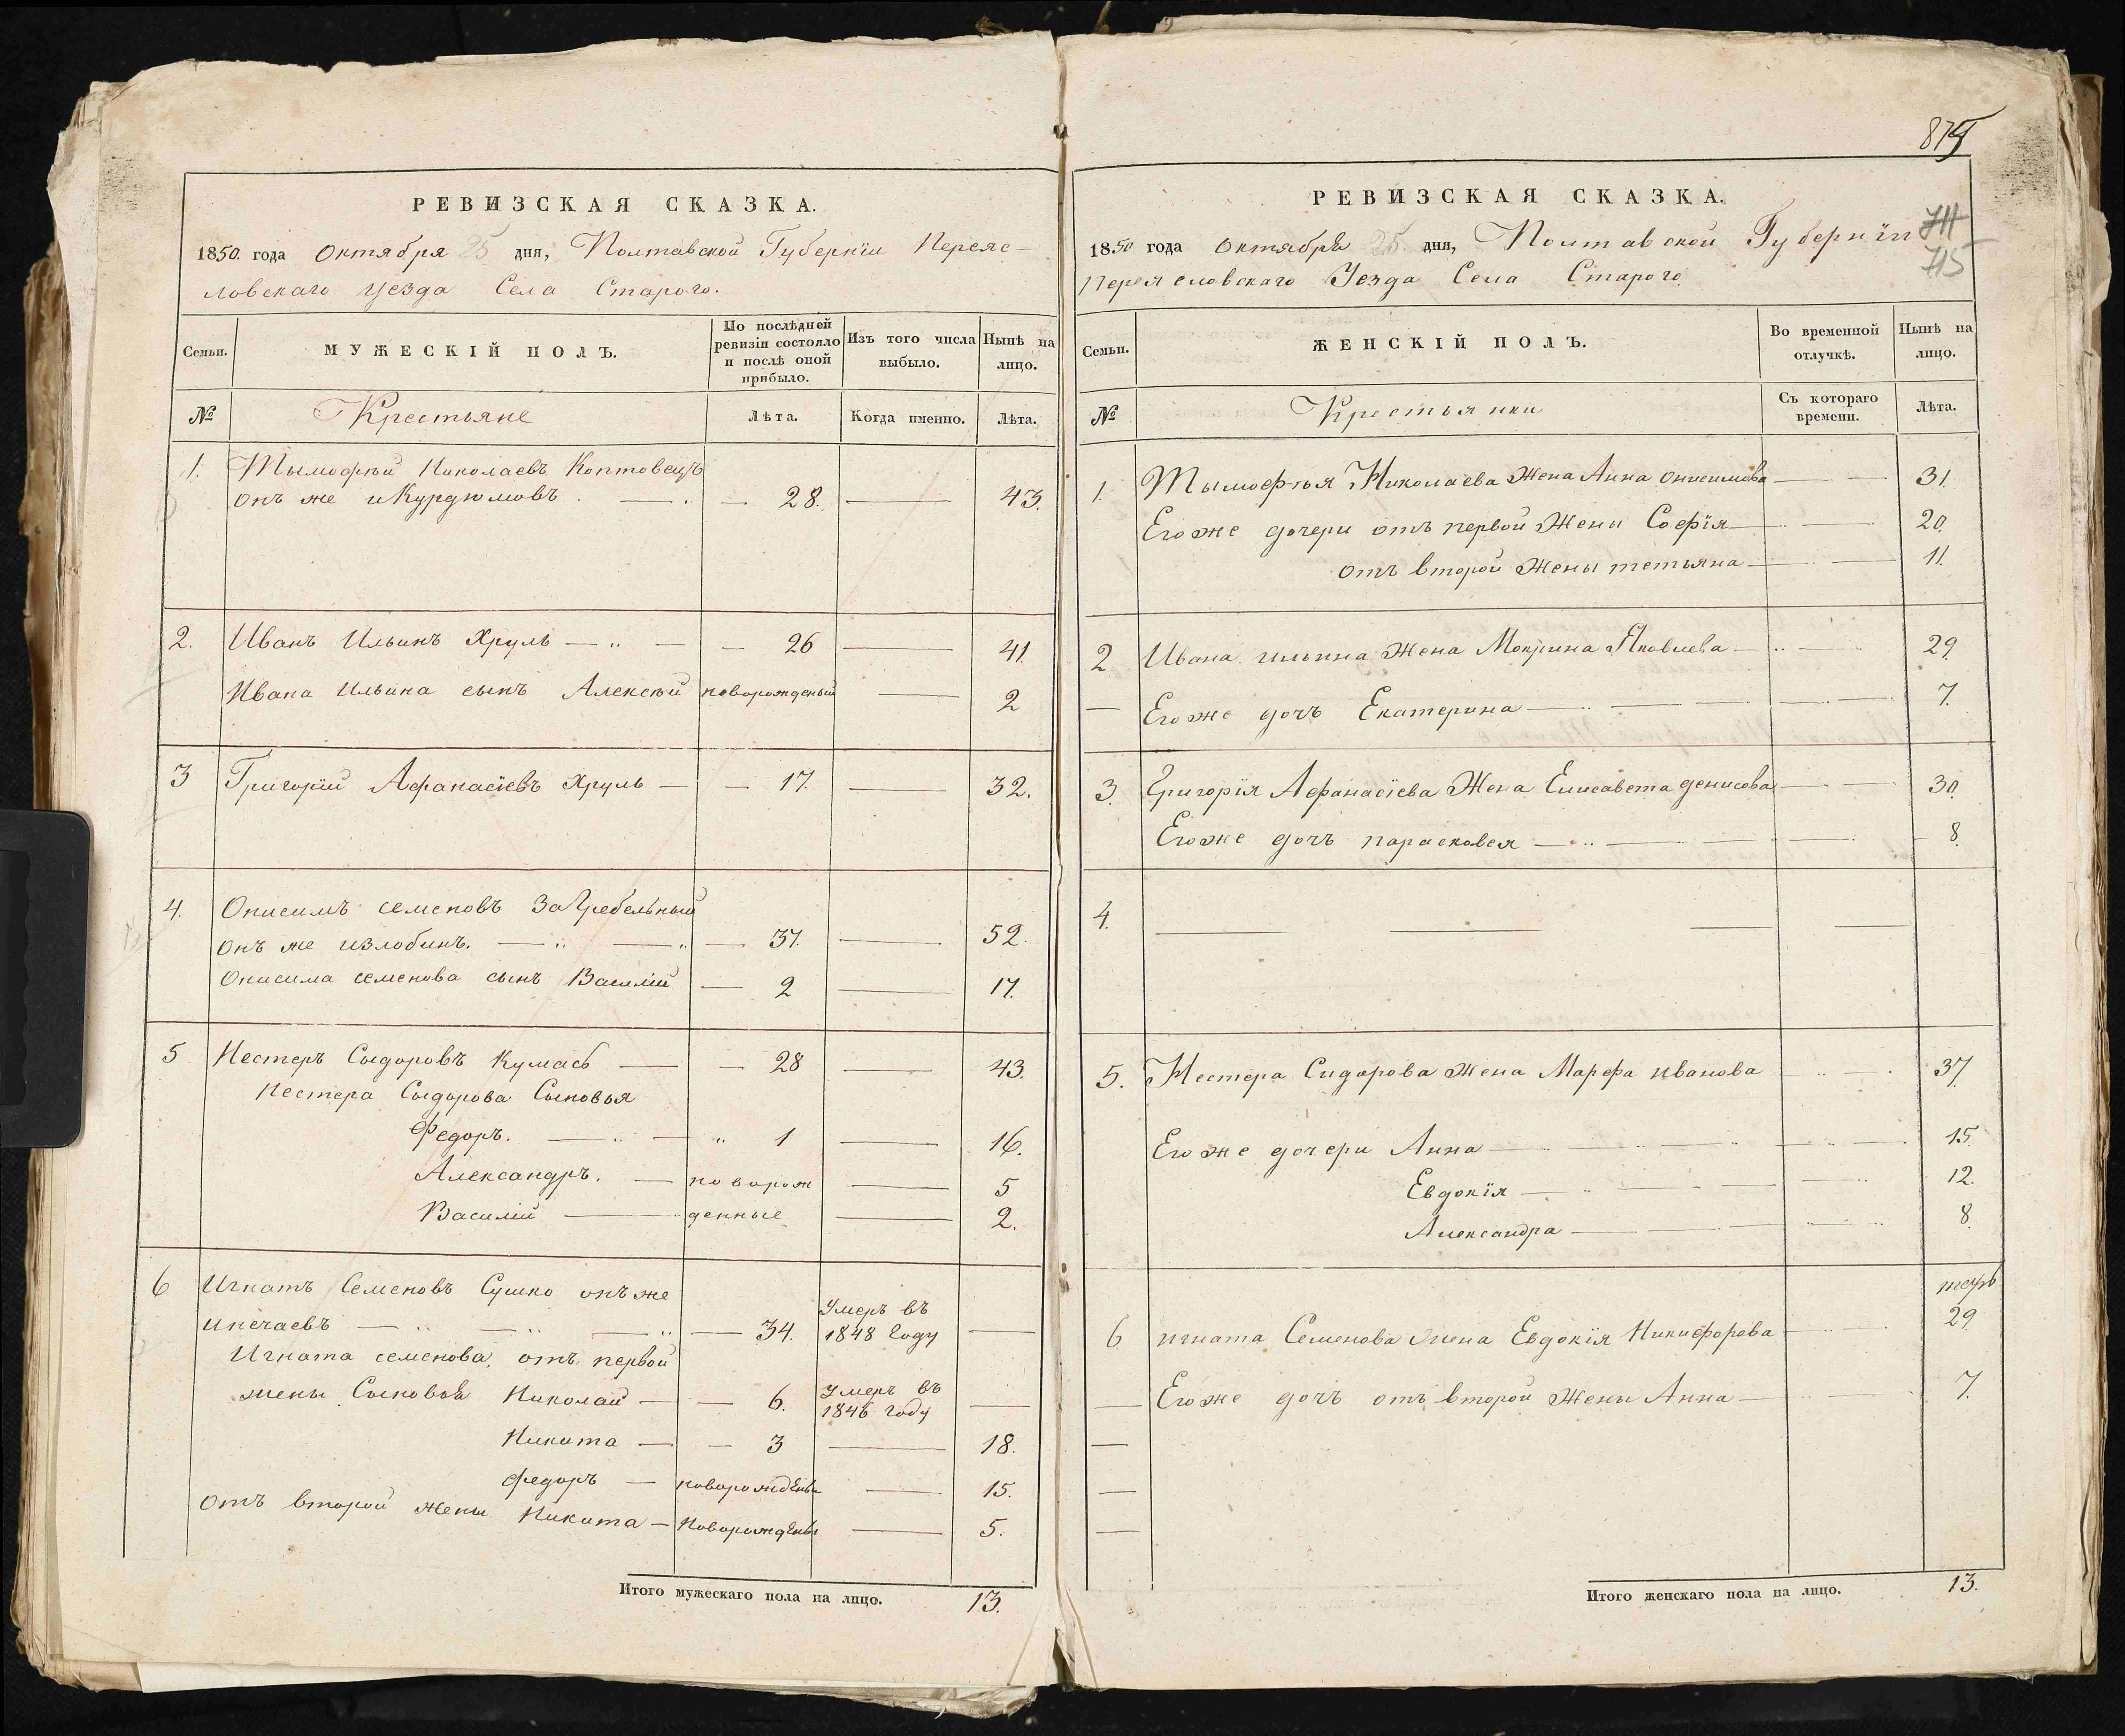 РЕВИЗСКАЯ СКАЗКА.
1850. года Октября 25 дня, Полтавской Губернїи Переяс-
ловскаго уезда Села Старого.
Семьи.
МУЖЕСКІЙ ПОЛЪ.
По послѣдней ревизіи состояло и послѣ оной прибыло.
Изъ того числа выбыло.
Нынѣ на лицо.
№
Крестьяне
Лѣта.
Когда именно.
Лѣта.
1. Тымофѣй Николаевъ Коптовецъ
онъ же и Курдюмовъ. — 28. — 43.
2. Иванъ Ильинъ Хруль — 26 — 41.
Ивана Ильина сынъ Алексѣй новорожденый — 2
3 Григорїй Афанасїевъ Хруль — 17. — 32.
4. Онисимъ семеновъ Загребельный
онъ же излобинъ. — 37. — 52.
Онисима семенова сынъ Василїй — 2 — 17.
5 Нестеръ Сыдоровъ Кумась — 28 — 43.
Нестера Сыдорова Сыновья
Федоръ. — 1 — 16.
Александръ. — новорож — 5
Василїй — денные — 2.
6 Игнатъ Семеновъ Сушко онъ же
инечаевъ — 34. Умеръ въ 1848 году —
Игната семенова, отъ первой
жены Сыновья Николай — 6. Умеръ въ 1846 году —
Никита — 3 — 18.
Федоръ — новорожденый — 15.
отъ второй жены Никита — Новорожденый — 5.
Итого мужескаго пола на лицо. 13.
875
711
715
РЕВИЗСКАЯ СКАЗКА.
1850 года Октября 25. дня, Полтавской Губернїи
Переясловскаго Уезда Села Старого.
Семьи.
ЖЕНСКІЙ ПОЛЪ.
Во временной отлучкѣ.
Нынѣ на лицо.
№
Крестьянки
Съ котораго времени.
Лѣта.
1. Тымофѣя Николаева Жена Анна онисимова — 31.
Его же дочери отъ первой Жены Софїя — 20.
отъ второй Жены тетьяна — 11.
2 Ивана ильина Жена Мокрина Яковлева — 29.
— Его же дочь Екатерина — 7.
3. Григорїя Афанасїева Жена Елисавета денисова — 30.
Его же дочъ парасковея — 8.
4. —
5. Нестера Сидорова Жена Марфа иванова — 37.
Его же дочери Анна — 15.
Евдокїя — 12.
Александра — 8.
6 игната Семенова жена Евдокїя Никифорова — 29
— Его же дочъ отъ второй Жены Анна — 7.
Итого женскаго пола на лицо. 13.